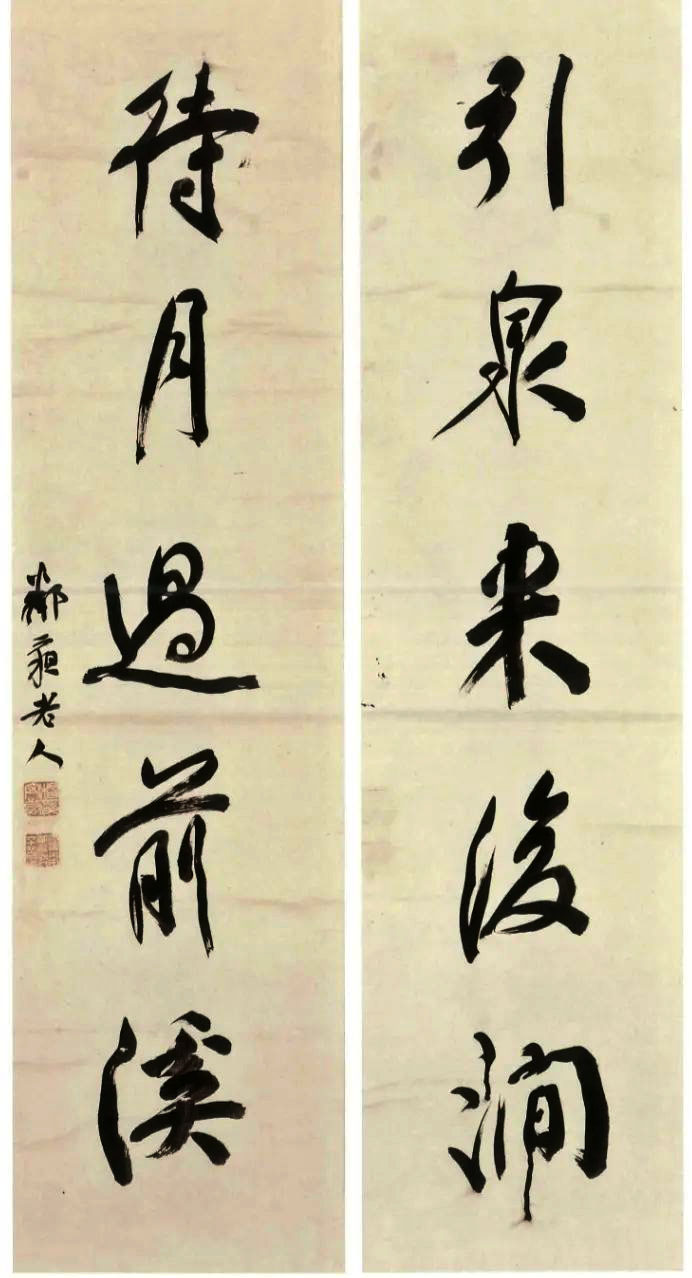 引泉来後澗
待月過前溪
鄰蘇老人